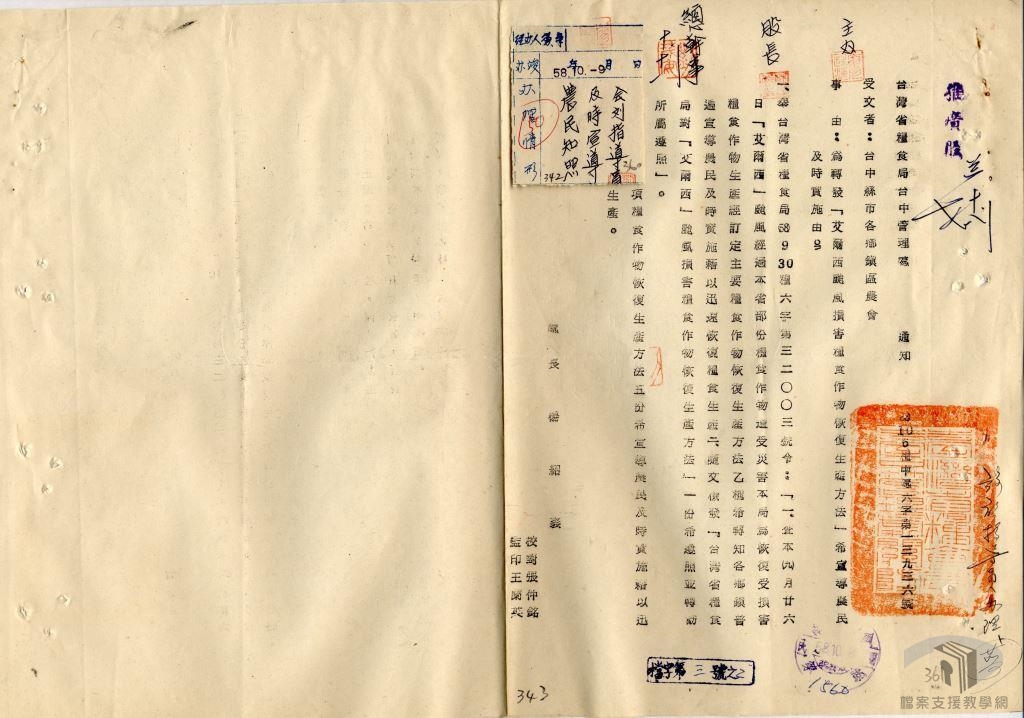 推廣股
台灣省糧食局台中管理處　通知
58 10 6 糧中處六字第一三九三六號
受文者：台中縣市各鄉鎮區農會
事　由：為轉發「艾爾西颱風損害糧食作物恢復生產方法」希宣導農民
及時實施由
一、奉台灣省糧食局58 9 30糧六字第三二〇〇三號令：「一、查本(九)月廿六
日「艾爾西」颱風經過本省部份糧食作物遭受災害本局為恢復受損害
糧食作物生產經訂定主要糧食作物恢復生產方法乙種希轉知各鄉鎮普
遍宣導農民及時實施藉以迅速恢復糧食生產二、隨文檢發「台灣省糧食
局對「艾爾西」颱風損害糧食作物恢復生產方法」一份希遵照並轉飭
所屬遵照」。
項糧食作物恢復生產方法五份希宣導農民及時實施藉以迅
生產。
處長　楊紹裘
校對張仲銘
監印王蘭英
主幼
股長
總幹事
58.10.-9
年　月　日
辦理情形
會列指導員
及時宣導
農民知照
342
檔字第三號之二
58.10.
1560
343
檔案支援教學網